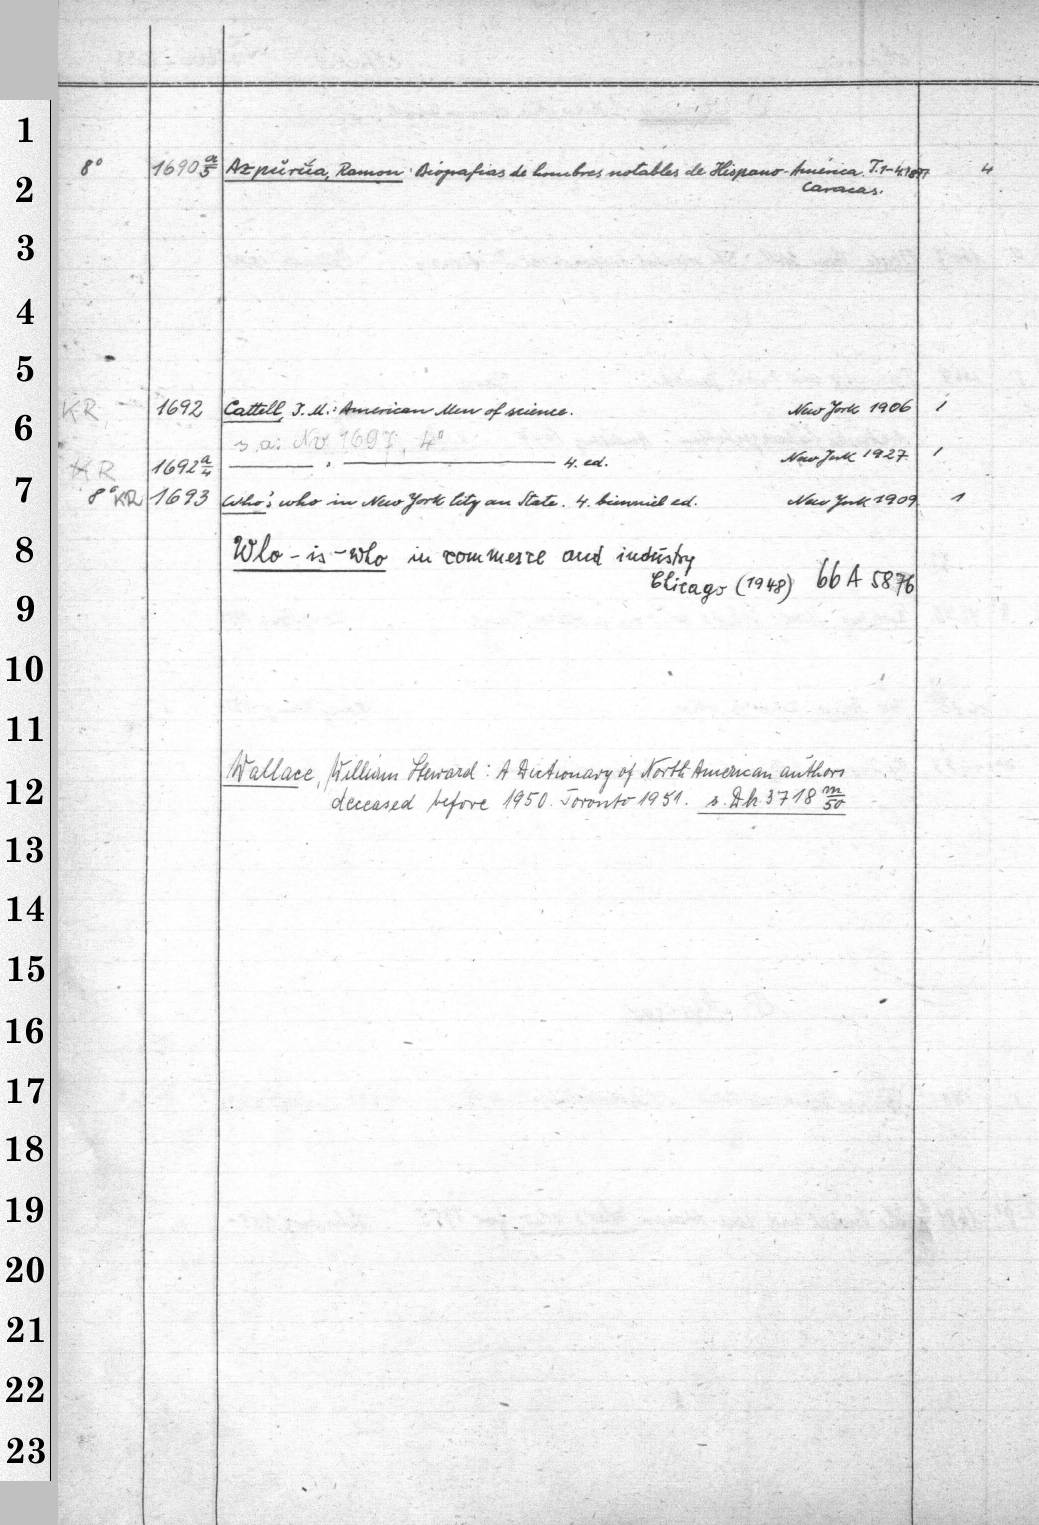 1
8° 1690 a/5 Azpŭrŭa, Ramon: Biografias de hombres notables de Hispano-América. T.1-4. 1877 4
2
Caracas.
3
4
5
KR 1692 Cattell, J. M.: American Men of science. New York 1906 1
6
s. a. No 1697, 4°
KR 1692 a/4 ——— , ——————— 4. ed. New York 1927 1
7
8° KR 1693 Who's who in New York City an State. 4. bienniel ed. New York 1909 1
8
Who-is-who in commerce and indŭstry
Chicago (1948) 66 A 5876
9
10
11
Wallace, William Steward: A Dictionary of North American aŭthors
12
deceased before 1950. Toronto 1951. s. Dk. 3718 m/50
13
14
15
16
17
18
19
20
21
22
23